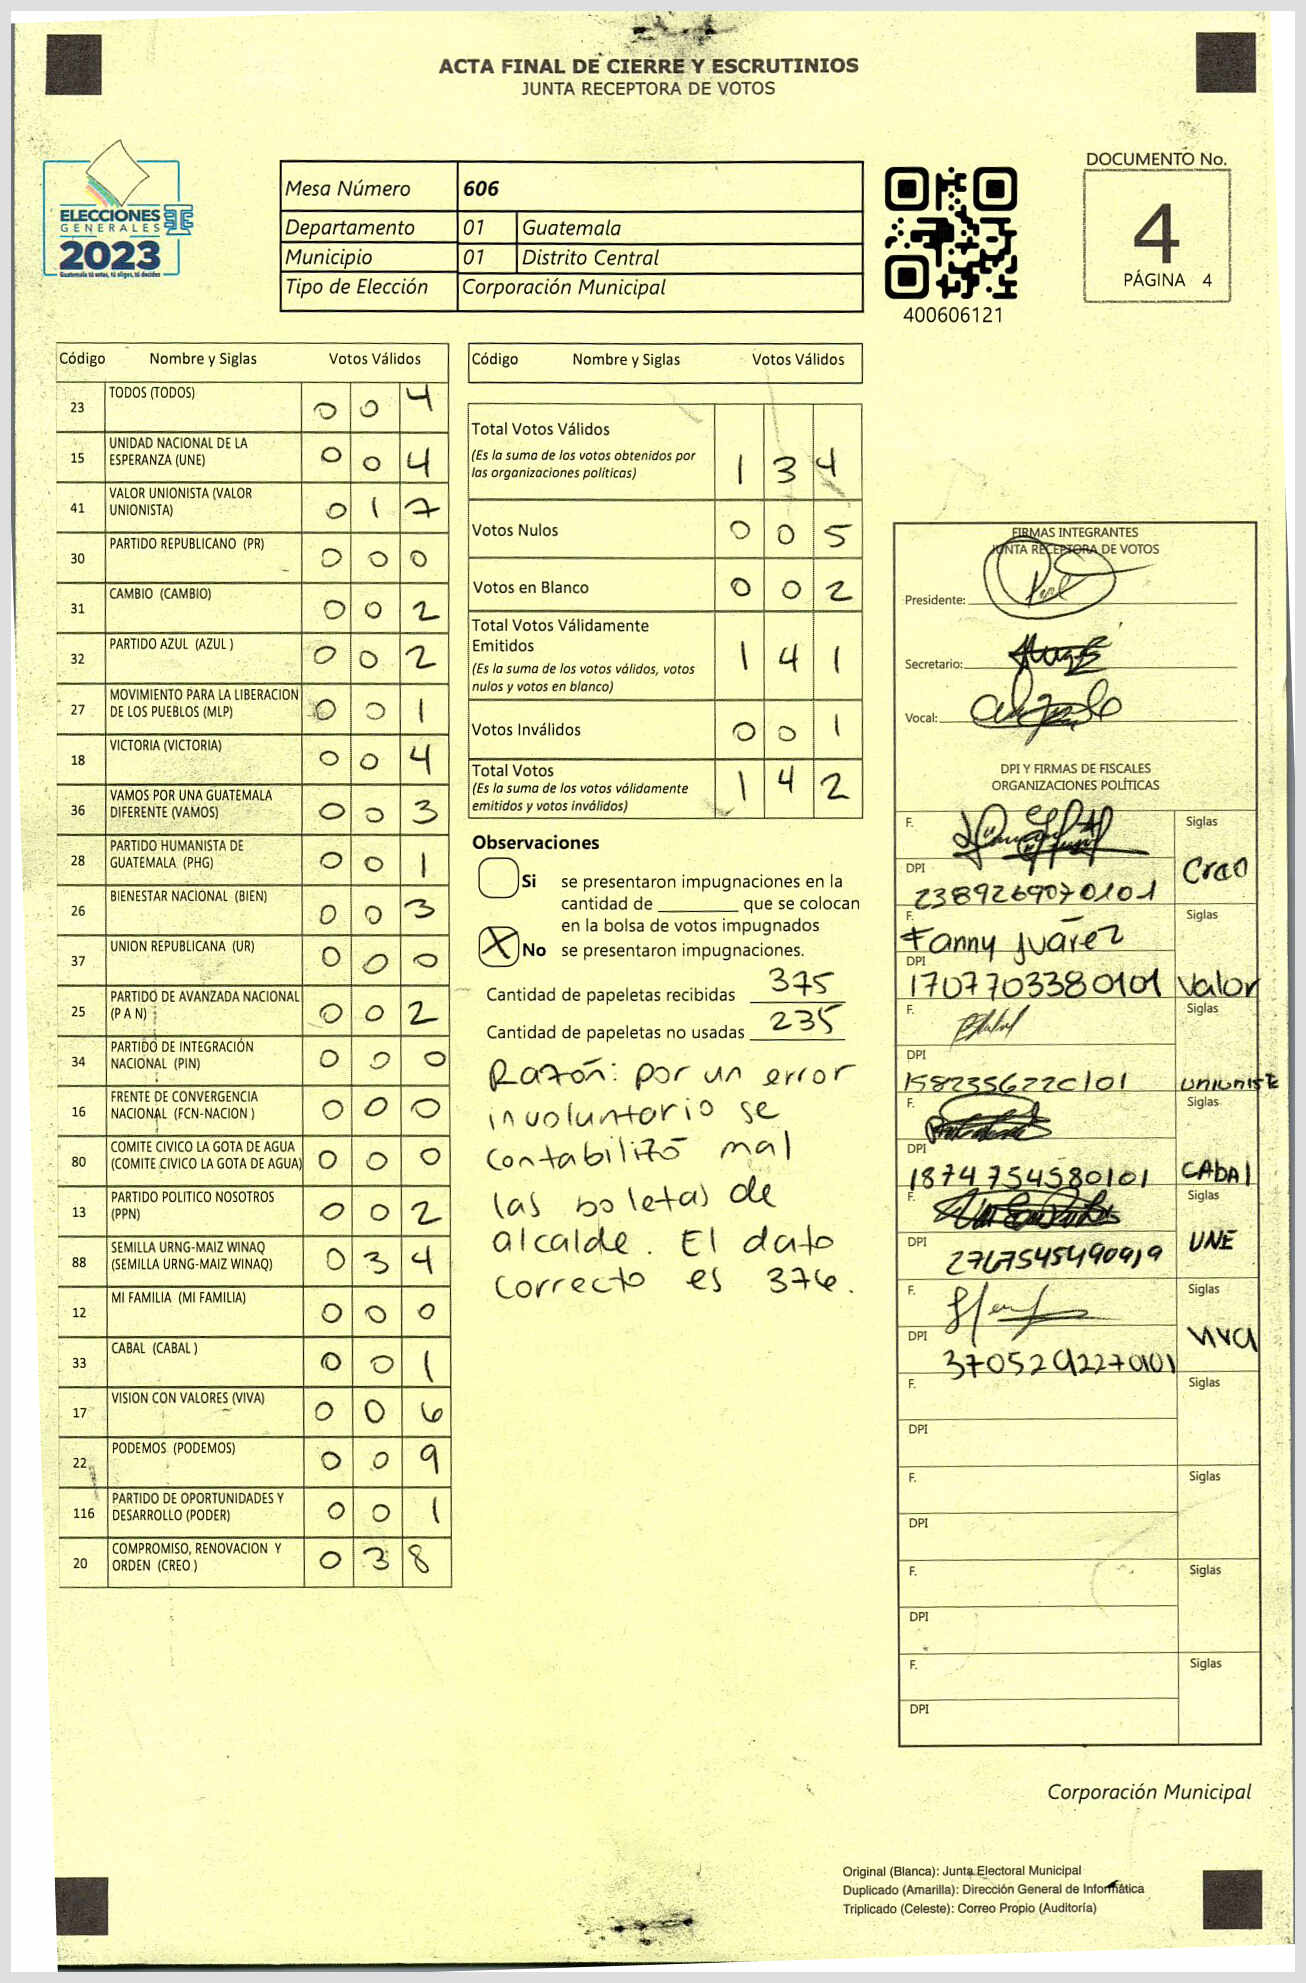 ACTA FINAL DE CIERRE Y ESCRUTINIOS
JUNTA RECEPTORA DE VOTOS
ELECCIONES
GENERALES
2023
Guatemala tú votas, tú eliges, tú decides
Mesa Número 606
Departamento 01 Guatemala
Municipio 01 Distrito Central
Tipo de Elección Corporación Municipal
400606121
DOCUMENTO No.
4
PÁGINA 4
Código Nombre y Siglas Votos Válidos
23 TODOS (TODOS) 0 0 4
15 UNIDAD NACIONAL DE LA
ESPERANZA (UNE) 0 0 4
41 VALOR UNIONISTA (VALOR
UNIONISTA) 0 1 7
30 PARTIDO REPUBLICANO (PR) 0 0 0
31 CAMBIO (CAMBIO) 0 0 2
32 PARTIDO AZUL (AZUL ) 0 0 2
27 MOVIMIENTO PARA LA LIBERACION
DE LOS PUEBLOS (MLP) 0 0 1
18 VICTORIA (VICTORIA) 0 0 4
36 VAMOS POR UNA GUATEMALA
DIFERENTE (VAMOS) 0 0 3
28 PARTIDO HUMANISTA DE
GUATEMALA (PHG) 0 0 1
26 BIENESTAR NACIONAL (BIEN) 0 0 3
37 UNION REPUBLICANA (UR) 0 0 0
25 PARTIDO DE AVANZADA NACIONAL
(P A N) 0 0 2
34 PARTIDO DE INTEGRACIÓN
NACIONAL (PIN) 0 0 0
16 FRENTE DE CONVERGENCIA
NACIONAL (FCN-NACION ) 0 0 0
80 COMITE CIVICO LA GOTA DE AGUA
(COMITE CIVICO LA GOTA DE AGUA) 0 0 0
13 PARTIDO POLITICO NOSOTROS
(PPN) 0 0 2
88 SEMILLA URNG-MAIZ WINAQ
(SEMILLA URNG-MAIZ WINAQ) 0 3 4
12 MI FAMILIA (MI FAMILIA) 0 0 0
33 CABAL (CABAL ) 0 0 1
17 VISION CON VALORES (VIVA) 0 0 6
22 PODEMOS (PODEMOS) 0 0 9
116 PARTIDO DE OPORTUNIDADES Y
DESARROLLO (PODER) 0 0 1
20 COMPROMISO, RENOVACION Y
ORDEN (CREO ) 0 3 8
Código Nombre y Siglas Votos Válidos
Total Votos Válidos
(Es la suma de los votos obtenidos por
las organizaciones políticas) 1 3 4
Votos Nulos 0 0 5
Votos en Blanco 0 0 2
Total Votos Válidamente
Emitidos 1 4 1
(Es la suma de los votos válidos, votos
nulos y votos en blanco)
Votos Inválidos 0 0 1
Total Votos
(Es la suma de los votos válidamente
emitidos y votos inválidos) 1 4 2
Observaciones
Si se presentaron impugnaciones en la
cantidad de ________ que se colocan
en la bolsa de votos impugnados
X No se presentaron impugnaciones.
Cantidad de papeletas recibidas 375
Cantidad de papeletas no usadas 235
Razón: por un error
involuntario se
contabilizó mal
las boletas de
alcalde. El dato
correcto es 376.
FIRMAS INTEGRANTES
JUNTA RECEPTORA DE VOTOS
Presidente:
Secretario:
Vocal:
DPI Y FIRMAS DE FISCALES
ORGANIZACIONES POLÍTICAS
F. Siglas
DPI Creo
2389269070101
F. Siglas
Fanny Juárez
DPI
1707703380101 Valor
F. Siglas
DPI
unioniste
F. Siglas
DPI
1874754580101 CAbal
F. Siglas
DPI UNE
F. Siglas
DPI viva
F. Siglas
DPI
F. Siglas
DPI
F. Siglas
DPI
F. Siglas
DPI
Corporación Municipal
Original (Blanca): Junta Electoral Municipal
Duplicado (Amarilla): Dirección General de Informática
Triplicado (Celeste): Correo Propio (Auditoría)